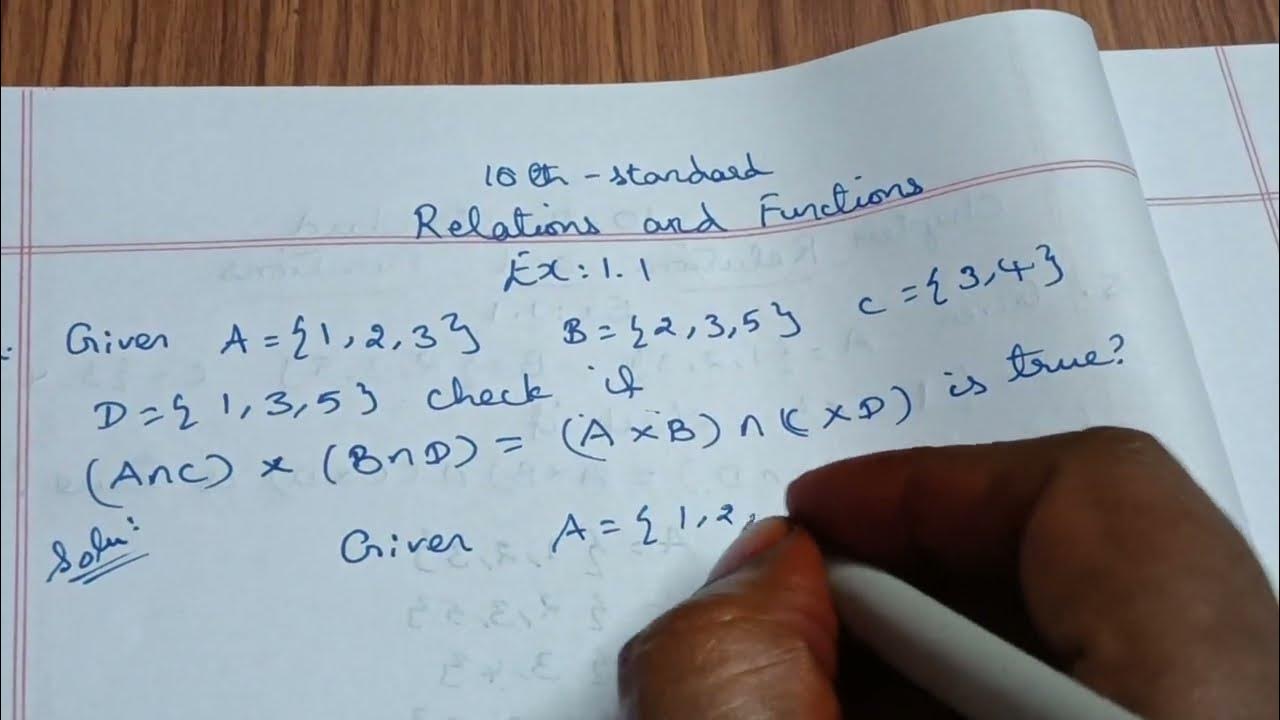 10th - standard
Relations and Functions
Ex: 1.1
Given A = {1, 2, 3} B = {2, 3, 5} C = {3, 4}
D = {1, 3, 5} check if
(A∩C) × (B∩D) = (A × B) ∩ (C × D) is true?
Soln:
Given A = {1, 2,